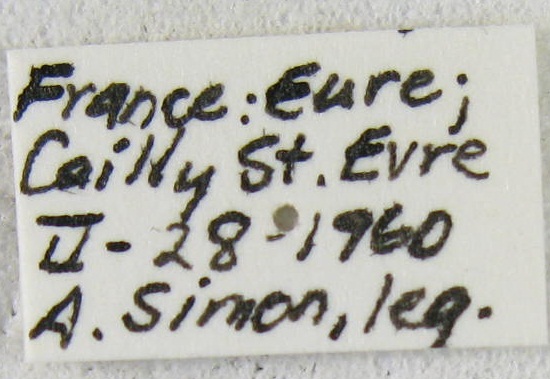 France: Eure;
Cailly St. Evre
II-28-1960
A. Simon, leg.